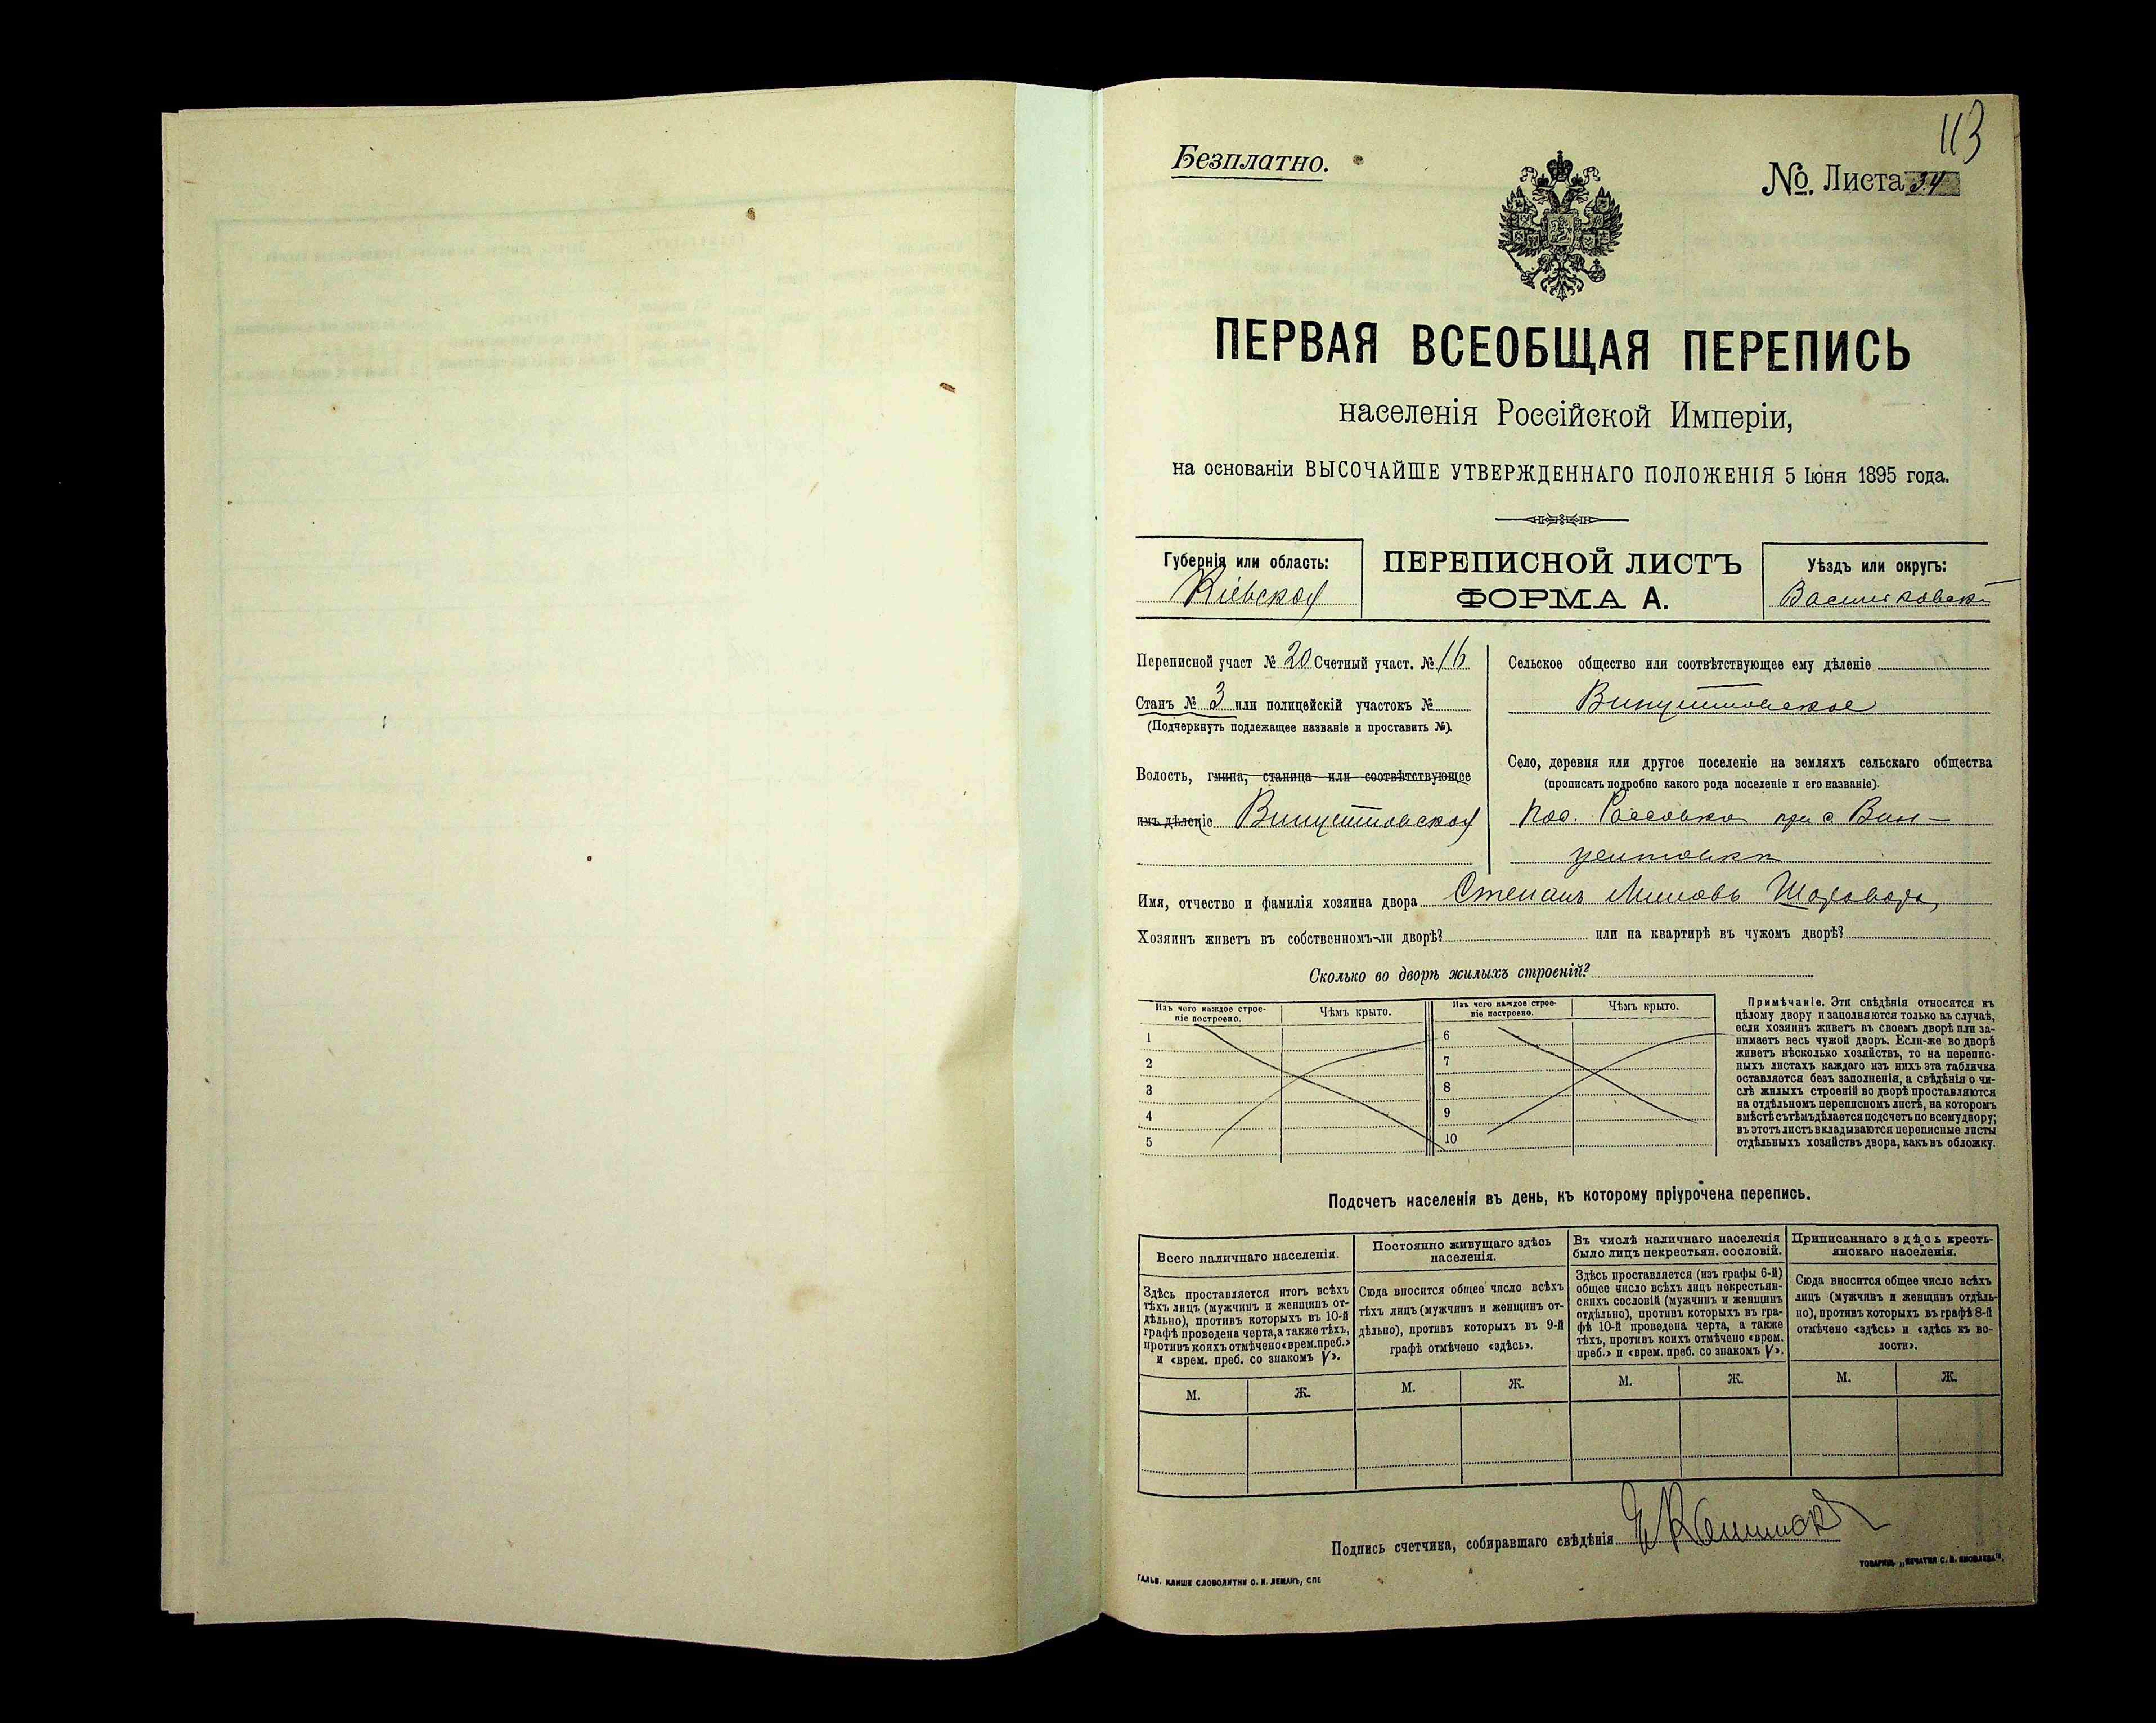 113
Безплатно.
№. Листа 34
ПЕРВАЯ ВСЕОБЩАЯ ПЕРЕПИСЬ
населенія Россійской Имперіи,
на основаніи ВЫСОЧАЙШЕ УТВЕРЖДЕННАГО ПОЛОЖЕНІЯ 5 Іюня 1895 года.
Губернія или область:
Кіевская
ПЕРЕПИСНОЙ ЛИСТЪ
ФОРМА А.
Уѣздъ или округъ:
Васильковск
Переписной участ № 20 Счетный участ. № 16
Станъ № 3 или полицейскій участокъ №
(Подчеркнуть подлежащее названіе и проставить №).
Волость, гмина, станица или соотвѣтствующее
имъ дѣленіе Винцентовская
Сельское общество или соотвѣтствующее ему дѣленіе
Винцентовское
Село, деревня или другое поселеніе на земляхъ сельскаго общества
(прописать подробно какого рода поселеніе и его названіе).
при с Вин-
центовки
Имя, отчество и фамилія хозяина двора Степанъ
Хозяинъ живетъ въ собственномъ-ли дворѣ? или на квартирѣ въ чужомъ дворѣ?
Сколько во дворѣ жилыхъ строеній?
Изъ чего каждое строе-
ніе построено.
Чѣмъ крыто.
1
2
3
4
5
Изъ чего каждое строе-
ніе построено.
Чѣмъ крыто.
6
7
8
9
10
Примѣчаніе. Эти свѣдѣнія относятся къ
цѣлому двору и заполняются только въ случаѣ,
если хозяинъ живетъ въ своемъ дворѣ или за-
нимаетъ весь чужой дворъ. Если-же во дворѣ
живетъ нѣсколько хозяйствъ, то на перепис-
ныхъ листахъ каждаго изъ нихъ эта табличка
оставляется безъ заполненія, а свѣдѣнія о чи-
слѣ жилыхъ строеній во дворѣ проставляются
на отдѣльномъ переписномъ листѣ, на которомъ
вмѣстѣ съ тѣмъ дѣлается подсчетъ по всему двору;
въ этотъ листъ вкладываются переписные листы
отдѣльныхъ хозяйствъ двора, какъ въ обложку.
Подсчетъ населенія въ день, къ которому пріурочена перепись.
Всего наличнаго населенія.
Здѣсь проставляется итогъ всѣхъ
тѣхъ лицъ (мужчинъ и женщинъ от-
дѣльно), противъ которыхъ въ 10-й
графѣ проведена черта, а также тѣхъ,
противъ коихъ отмѣчено «врем. преб.»
и «врем. преб. со знакомъ V».
М. Ж.
Постоянно живущаго здѣсь
населенія.
Сюда вносится общее число всѣхъ
тѣхъ лицъ (мужчинъ и женщинъ от-
дѣльно), противъ которыхъ въ 9-й
графѣ отмѣчено «здѣсь».
М. Ж.
Въ числѣ наличнаго населенія
было лицъ некрестьян. сословій.
Здѣсь проставляется (изъ графы 6-й)
общее число всѣхъ лицъ некрестьян-
скихъ сословій (мужчинъ и женщинъ
отдѣльно), противъ которыхъ въ гра-
фѣ 10-й проведена черта, а также
тѣхъ, противъ коихъ отмѣчено «врем.
преб.» и «врем. преб. со знакомъ V».
М. Ж.
Приписаннаго здѣсь кресть-
янскаго населенія.
Сюда вносится общее число всѣхъ
лицъ (мужчинъ и женщинъ отдѣль-
но), противъ которыхъ въ графѣ 8-й
отмѣчено «здѣсь» и «здѣсь къ во-
лости».
М. Ж.
Подпись счетчика, собиравшаго свѣдѣнія
ГАЛЬВ. КЛИШЕ СЛОВОЛИТНИ О. И. ЛЕМАНЪ, СПБ
ТОВАРИЩ. „ПЕЧАТНЯ С. П. ЯКОВЛЕВА".